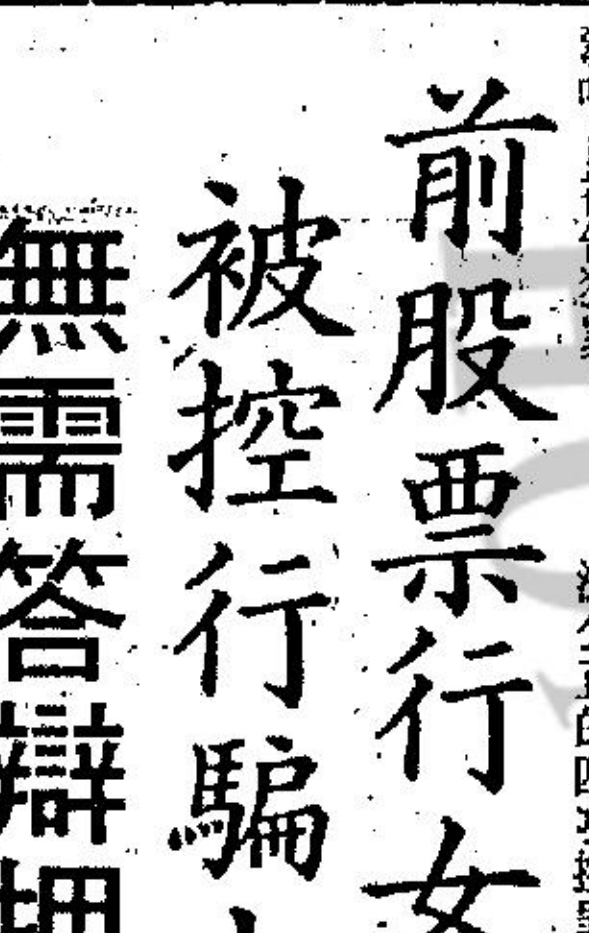 前股票行女
被控行騙
無需答辯